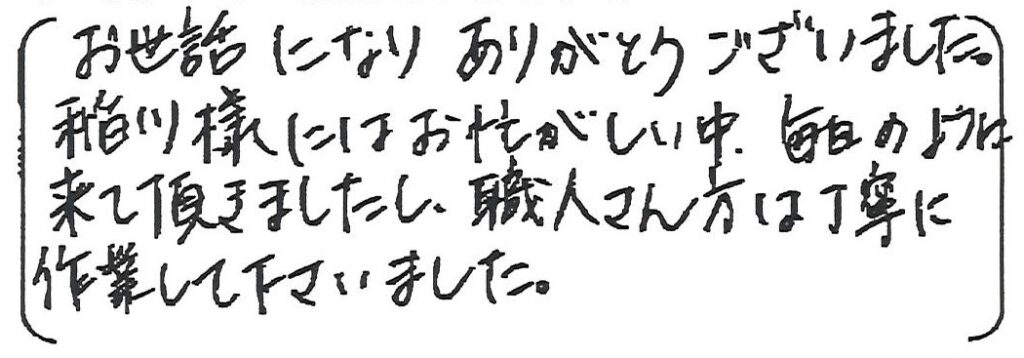 お世話になりありがとうございました。
稲川様にはお忙がしい中、毎日のように
来て頂きましたし、職人さん方は丁寧に
作業して下さいました。